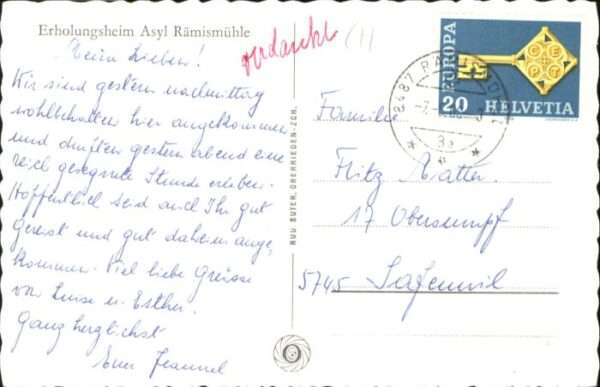 Erholungsheim Asyl Rämismühle
Meine Lieben!
Wir sind gestern nachmittag
wohlbehalten hier angekommen
und durften gestern abend eine
reich gesegnete Stunde erleben.
Hoffentlich seid auch Ihr gut
gereist und gut daheim ange-
kommen. Viel liebe Grüsse
von Luise u. Esther.
Ganz herzlichst
Eure
verdankt (1)
HUG. SUTER, OBERRIEDEN-ZCH.
EUROPA
CEPT
20 HELVETIA
8487
3a
Familie
Fritz Matter
17 Obersumpf
5745 Safenwil